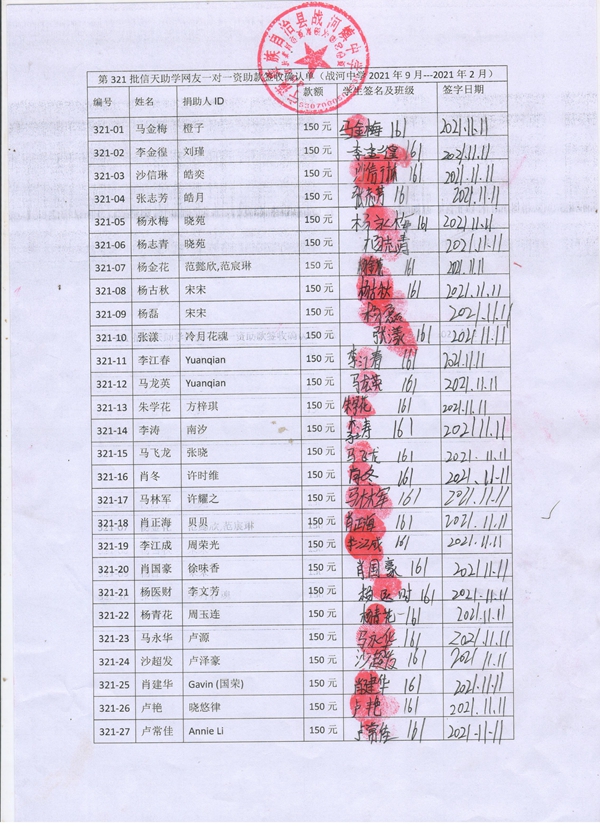 第 321 批信天助学网友一对一资助款签收确认单（战河中学 2021 年 9 月---2021 年 2 月）
编号 姓名 捐助人 ID 款额 学生签名及班级 签字日期
321-01 马金梅 橙子 150 元 马金梅 161 2021.11.11
321-02 李金徨 刘瑾 150 元 李金徨 161 2021.11.11
321-03 沙信琳 皓奕 150 元 沙信琳 161 2021.11.11
321-04 张志芳 皓月 150 元 张志芳 161 2021.11.11
321-05 杨永梅 晓苑 150 元 杨永梅 161 2021.11.11
321-06 杨志青 晓苑 150 元 杨志青 2021.11.11
321-07 杨金花 范懿欣,范宸琳 150 元 161 2021.11.11
321-08 杨古秋 宋宋 150 元 杨古秋 161 2021.11.11
321-09 杨磊 宋宋 150 元 杨磊 2021.11.11
321-10 张漾 冷月花魂 150 元 张漾 161 2021.11.11
321-11 李江春 Yuanqian 150 元 李江春 161 2021.11.11
321-12 马龙英 Yuanqian 150 元 马龙英 161 2021.11.11
321-13 朱学花 方梓琪 150 元 朱学花 161 2021.11.11
321-14 李涛 南汐 150 元 李涛 161 2021.11.11
321-15 马飞龙 张晓 150 元 马飞龙 161 2021.11.11
321-16 肖冬 许时维 150 元 肖冬 161 2021.11.11
321-17 马林军 许耀之 150 元 马林军 161 2021.11.11
321-18 肖正海 贝贝 150 元 肖正海 161 2021.11.11
321-19 李江成 周荣光 150 元 李江成 161 2021.11.11
321-20 肖国豪 徐味香 150 元 肖国豪 161 2021.11.11
321-21 杨医财 李文芳 150 元 杨医财 161 2021.11.11
321-22 杨青花 周玉连 150 元 杨青花 161 2021.11.11
321-23 马永华 卢源 150 元 马永华 161 2021.11.11
321-24 沙超发 卢泽豪 150 元 沙超发 161 2021.11.11
321-25 肖建华 Gavin (国荣) 150 元 肖建华 161 2021.11.11
321-26 卢艳 晓悠律 150 元 卢艳 161 2021.11.11
321-27 卢常佳 Annie Li 150 元 卢常佳 161 2021-11-11